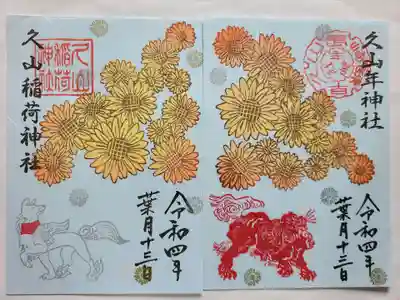 久山
稲荷
神社
久山稲荷神社
令和四年
葉月十三日
久山年神社
令和四年
葉月十三日